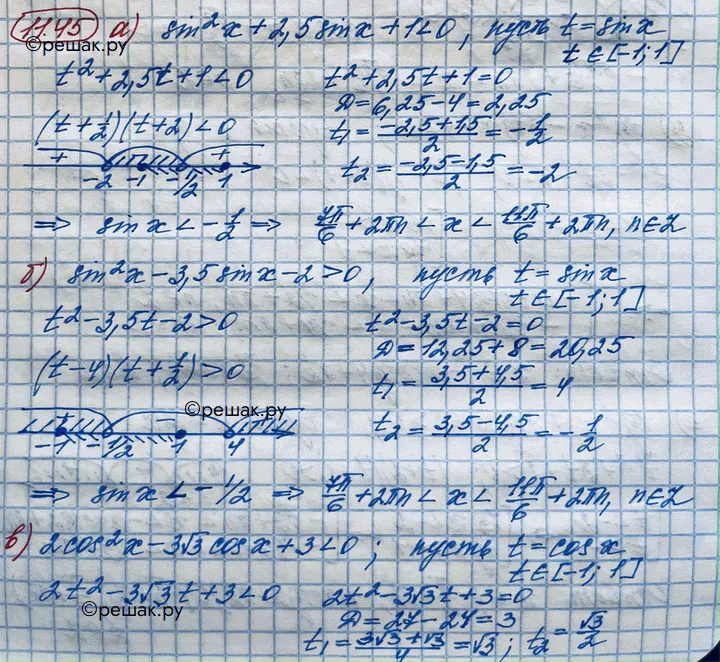 11.45 а) sin²x + 2,5sinx + 1 < 0, пусть t = sinx
©решак.ру
t ∈ [-1; 1]
t² + 2,5t + 1 < 0
t² + 2,5t + 1 = 0
D = 6,25 - 4 = 2,25
(t + 1/2)(t + 2) < 0
t₁ = (-2,5 + 1,5)/2 = -1/2
+ - +
-2 -1 -1/2 1
t₂ = (-2,5 - 1,5)/2 = -2
⇒ sinx < -1/2 ⇒ 7π/6 + 2πn < x < 11π/6 + 2πn, n∈Z
б) sin²x - 3,5sinx - 2 > 0, пусть t = sinx
t ∈ [-1; 1]
t² - 3,5t - 2 > 0
t² - 3,5t - 2 = 0
D = 12,25 + 8 = 20,25
(t - 4)(t + 1/2) > 0
t₁ = (3,5 + 4,5)/2 = 4
©решак.ру
+ - +
-1 -1/2 1 4
t₂ = (3,5 - 4,5)/2 = -1/2
⇒ sinx < -1/2 ⇒ 7π/6 + 2πn < x < 11π/6 + 2πn, n∈Z
в) 2cos²x - 3√3cosx + 3 < 0; пусть t = cosx
t ∈ [-1; 1]
2t² - 3√3t + 3 < 0
2t² - 3√3t + 3 = 0
©решак.ру
D = 27 - 24 = 3
t₁ = (3√3 + √3)/4 = √3; t₂ = √3/2